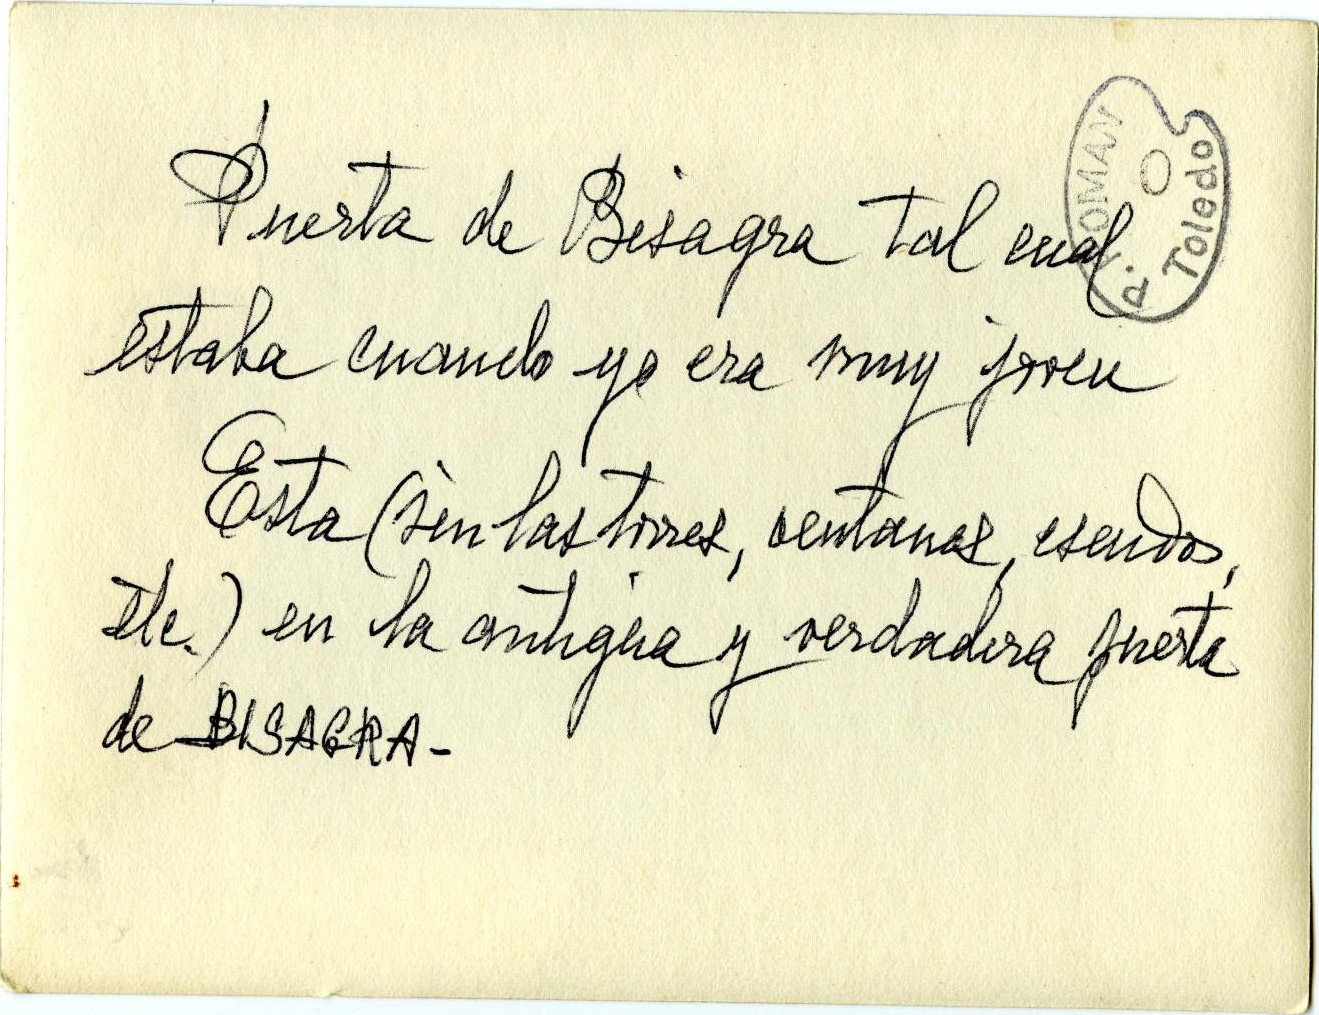 Puerta de Bisagra tal cual
estaba cuando yo era muy joven
Esta (sin las torres, ventanas, escudos,
etc.) en la antigua y verdadera puerta
de BISAGRA-
P. ROMAN
Toledo